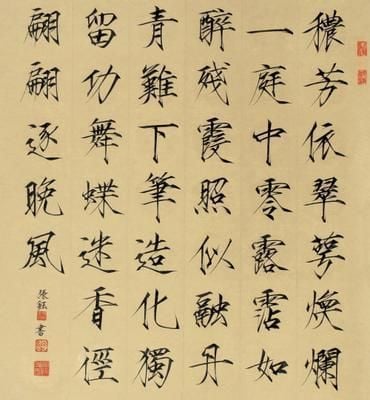 穠芳依翠萼煥爛
一庭中零露霑如
醉殘霞照似融丹
青難下筆造化獨
留功舞蝶迷香徑
翩翩逐晚風
張鈺書